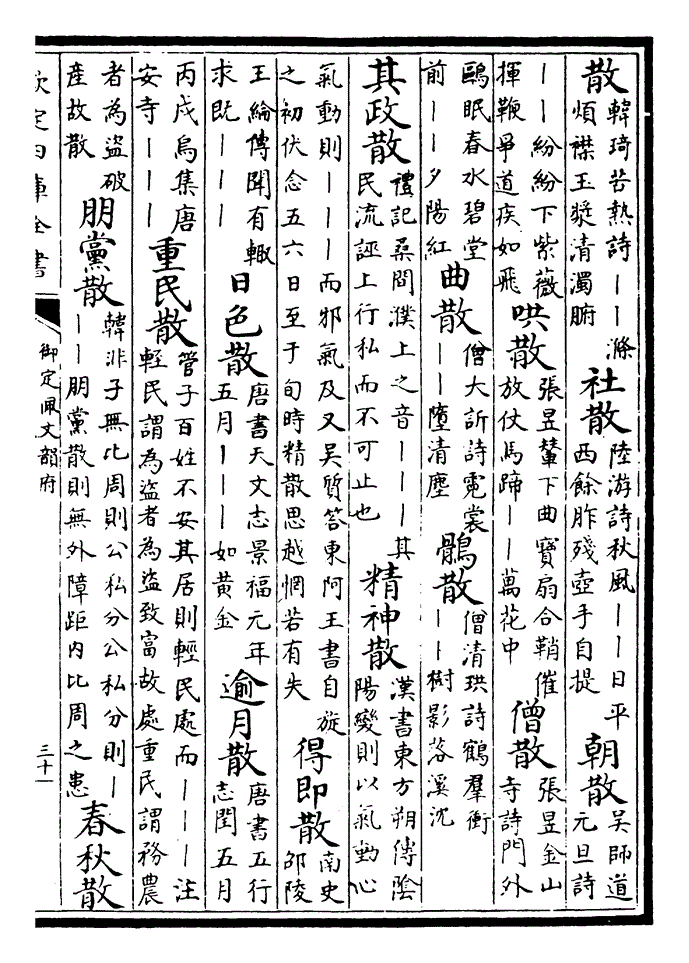 散韓琦苦熱詩丨丨滌煩襟玉漿清濁腑社散陸游詩秋風丨丨日平西餘胙殘壺手自提朝散吳師道元旦詩
丨丨紛紛下紫薇揮鞭爭道疾如飛哄散張昱輦下曲寶扇合鞘催放仗馬蹄丨丨萬花中僧散張昱金山寺詩門外
鷗眠春水碧堂前丨丨夕陽紅曲散僧大訢詩霓裳丨丨墮清塵鶻散僧清珙詩鶴羣衝丨丨樹影落溪沈
其政散禮記桑間濮上之音丨丨丨其民流誣上行私而不可止也精神散漢書東方朔傳陰陽變則以氣動心
氣動則丨丨丨而邪氣及又吳質答東阿王書自旋之初伏念五六日至于旬時精散思越惘若有失得即散南史邵陵
王綸傳聞有輙求既丨丨丨日色散唐書天文志景福元年五月丨丨丨如黃金逾月散唐書五行志閏五月
丙戌烏集唐安寺丨丨丨重民散管子百姓不安其居則輕民處而丨丨丨注輕民謂為盜者為盜致富故處重民謂務農
者為盜破產故散朋黨散韓非子無比周則公私分公私分則丨丨丨朋黨散則無外障距內比周之患春秋散
欽定四庫全書
御定佩文韻府
三十一